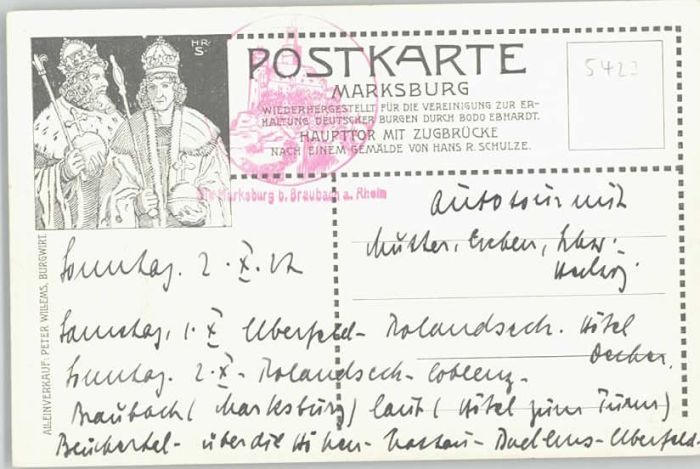 HR
S
POSTKARTE
MARKSBURG
WIEDERHERGESTELLT FÜR DIE VEREINIGUNG ZUR ER-
HALTUNG DEUTSCHER BURGEN DURCH BODO EBHARDT.
HAUPTTOR MIT ZUGBRÜCKE
NACH EINEM GEMÄLDE VON HANS R. SCHULZE.
Marksburg b. Braubach a. Rhein
ALLEINVERKAUF: PETER WILLEMS, BURGWIRT.
Autotour mit
Mutter,
Hedwig
Sonntag. 2.X.
Samstag, 1.X Elberfeld- Rolandseck. Hôtel
Decker.
Sonntag. 2.X- Rolandseck- Coblenz-
Braubach (Marksburg) (Hôtel zum Turm)
über die Höhen- Nassau- Elberfeld-